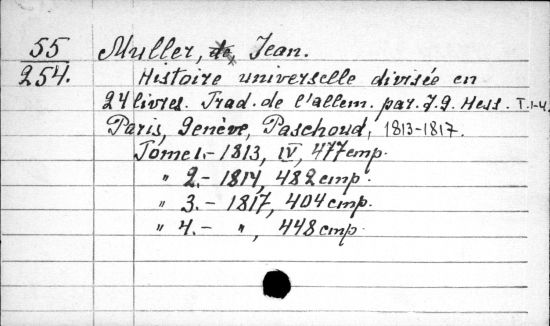 55 Muller, de Jean.
254. Histoire universelle divisée en
24 livres. Trad. de l'allem. par. J.G. Hess. T.1-4.
Paris, Genève, Paschoud, 1813-1817.
Tome 1.- 1813, IV, 477 стр.
" 2.- 1814, 482 стр.
" 3.- 1817, 404 стр.
" 4.- ", 448 стр.